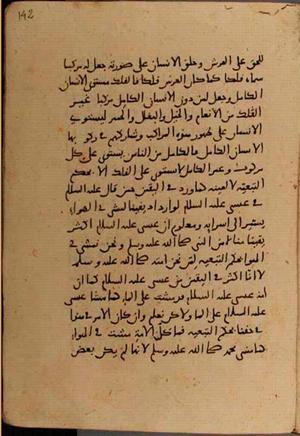 142
للحق على العرش وخلق الانسان على صورته جعل له مركبا
سماه فلكا كما كان العرش فلكا فالفلك مستوى الانسان
الكامل وجعل لمن دون الانسان الكامل مركبا غير
الفلك من الانعام والخيل والبغال والحمير ليستوى
الانسان على ظهور هذه المراكب وشاركهم فى ركوبها
الانسان الكامل فالكامل من الناس يستوى على كل
مركوب وغير الكامل لا يستوى على الفلك الا بحكم
التبعية لا لعينه كما ورد فى اليقين حين قال عليه السلام
فى عيسى عليه السلام لو ازداد يقينا لمشى فى الهواء
يشير الى اسرائه ومعلوم ان عيسى عليه السلام اكثر
يقينا منا لا من النبى صلى الله عليه وسلم ونحن نمشى فى
الهوا بحكم التبعية لمن نحن امته صلى الله عليه وسلم
لا انا اكثر فى اليقين من عيسى عليه السلام كما ان
امة عيسى عليه السلام قد مشت على الماء كما مشا عيسى
عليه السلام على الماء ولا كن نعلم وان كان الامر فى هذا
فى حقنا بحكم التبعية فما كل الامة مشت فى الهواء
كما مشى محمد صلى الله عليه وسلم لانه لم يكن بعض